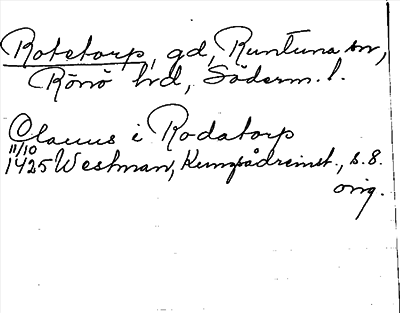 Rotetorp, gd, Runtuna sn,
Rönö hd, Söderm. l.
Olauus i Rodatorp
11/10
1425 Westman, Kungsådreinst., s. 8.
orig.